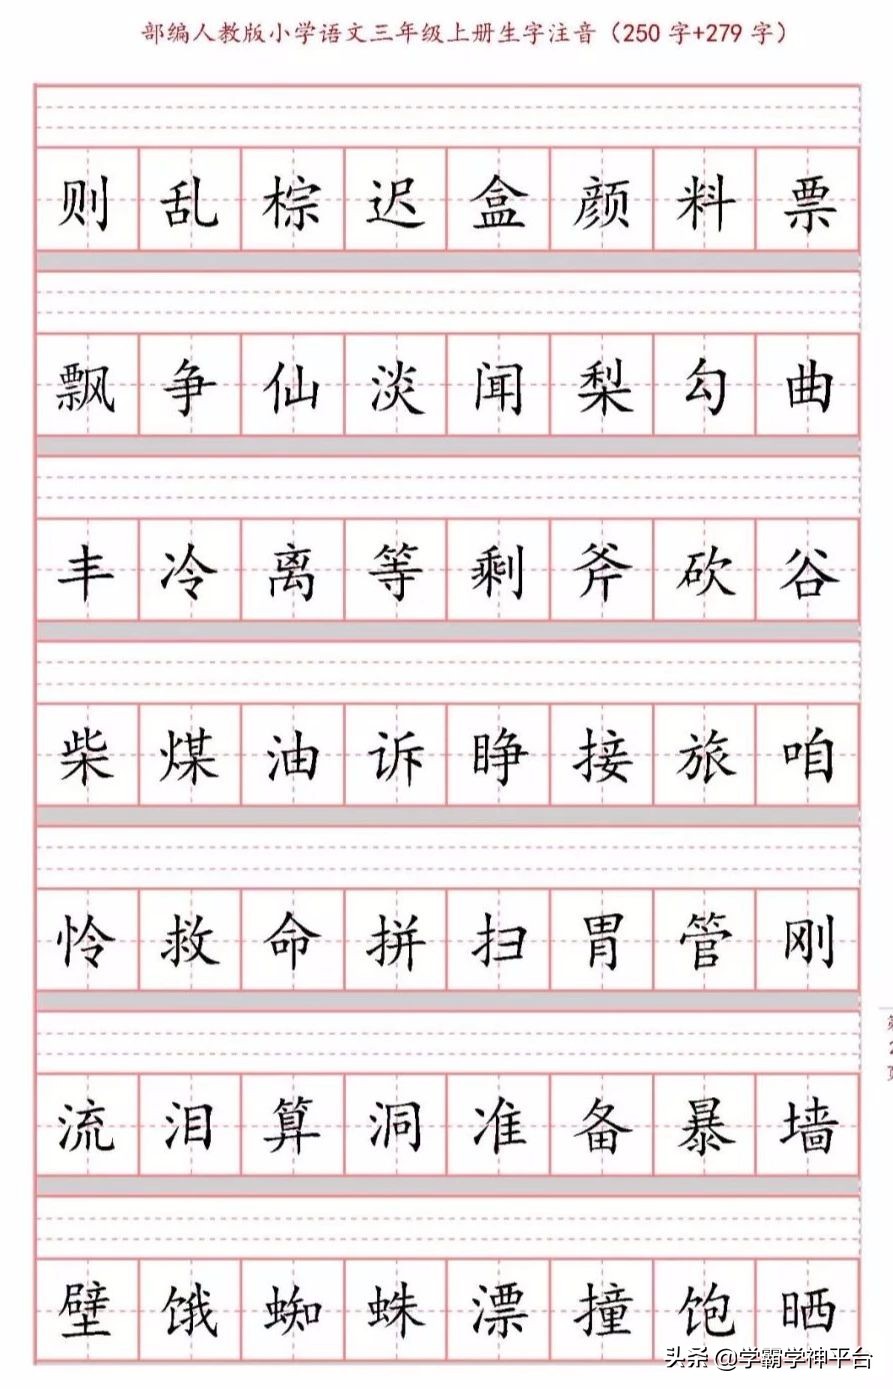 部编人教版小学语文三年级上册生字注音（250 字+279 字）
则 乱 棕 迟 盒 颜 料 票
飘 争 仙 淡 闻 梨 勾 曲
丰 冷 离 等 剩 斧 砍 谷
柴 煤 油 诉 睁 接 旅 咱
怜 救 命 拼 扫 胃 管 刚
流 泪 算 洞 准 备 暴 墙
壁 饿 蜘 蛛 漂 撞 饱 晒
头条 @学霸学神平台